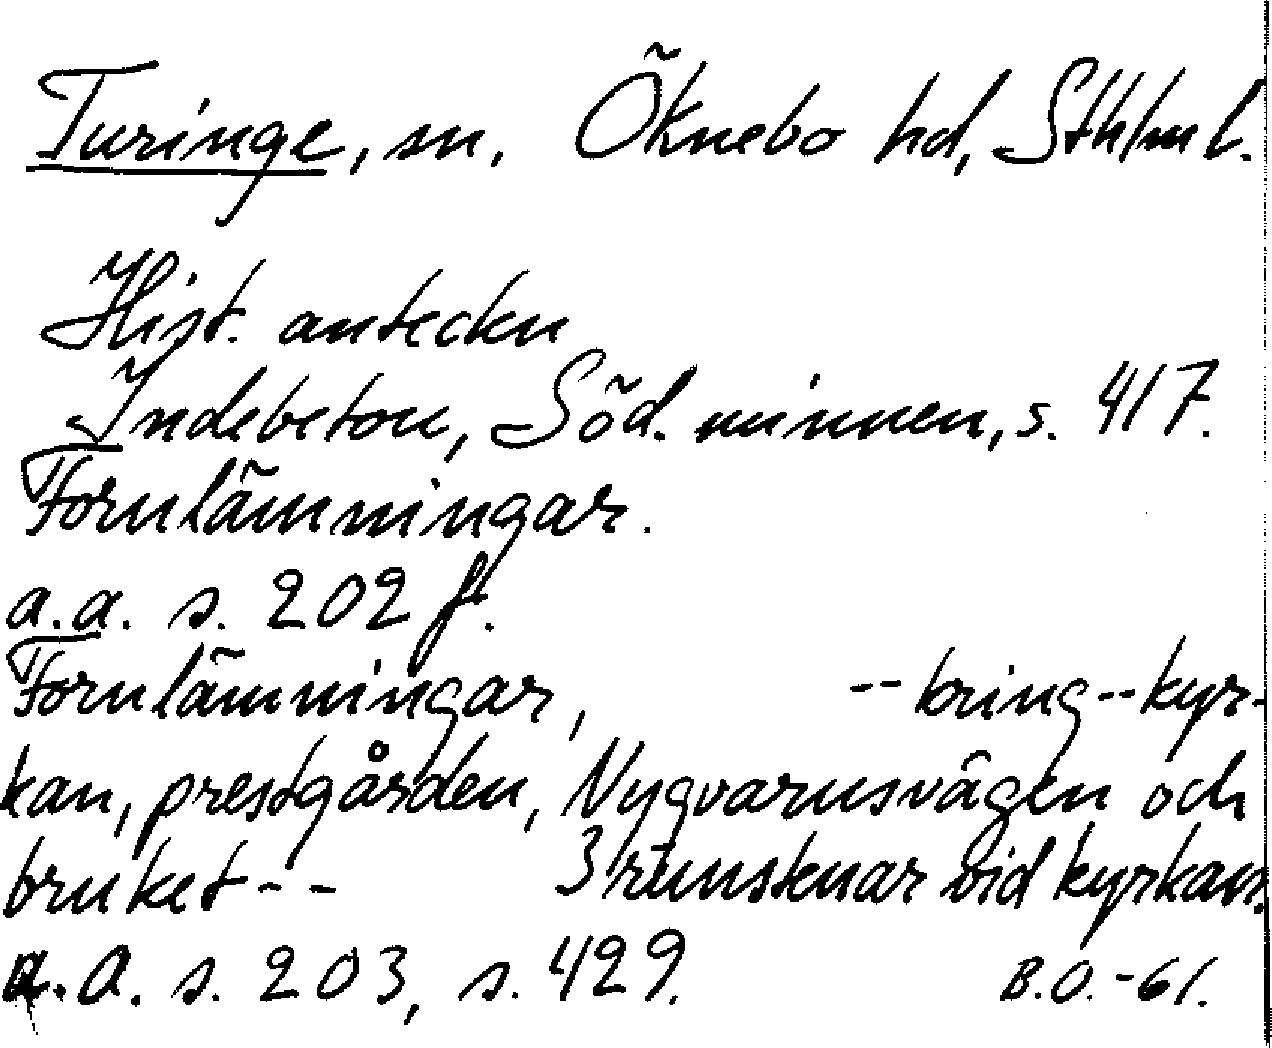 Turinge, sn. Öknebo hd, Sthlm l.
Hist. anteckn
Indebetou, Söd. minnen, s. 417.
Fornlämningar.
a.a. s. 202 f.
Fornlämningar, -- kring -- kyr-
kan, prestgården, Nygvarnsvägen och
bruket - - 3 runstenar vid kyrkan.
a.a. s. 203, s. 429. B.O. -61.